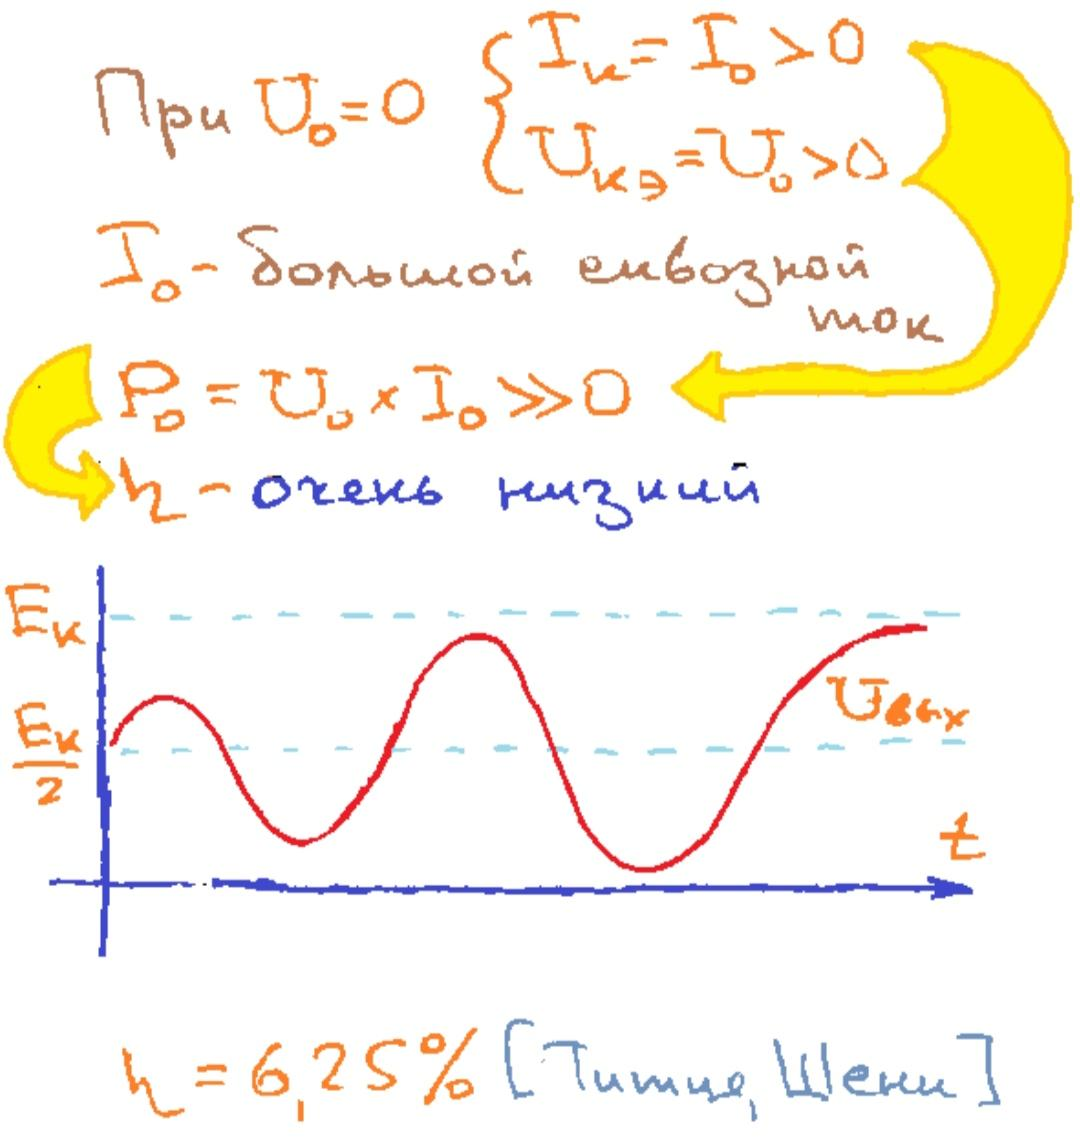 При U₀ = 0 { Iк = I₀ > 0
Uкэ = U₀ > 0
I₀ - большой сквозной
ток
P₀ = U₀ × I₀ >> 0
η - очень низкий
Eк
Eк/2
Uвых
t
η = 6,25% [Титце, Шенк]